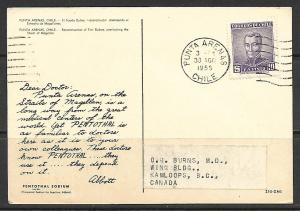 PUNTA ARENAS, CHILE - El Fuerte Bulnes, reconstruido dominando el
Estrecho de Magallanes.
PUNTA ARENAS, CHILE - Reconstruction of Fort Bulnes, overlooking the
Strait of Magellan.
Dear Doctor:
Punta Arenas, on the
Straits of Magellan is a
long way from the great
medical centers of the
world. Yet PENTOTHAL is
as familiar to doctors
here as it is to your
own colleagues. These doctors
know PENTOTHAL.... they
use it.... they depend
on it.
Abbott
PENTOTHAL SODIUM
PUNTA ARENAS
30 AGO
1955
CHILE
CORREOS DE CHILE
C.H. BURNS, M.D.,
WING BLDG.,
KAMLOOPS, B.C.,
CANADA